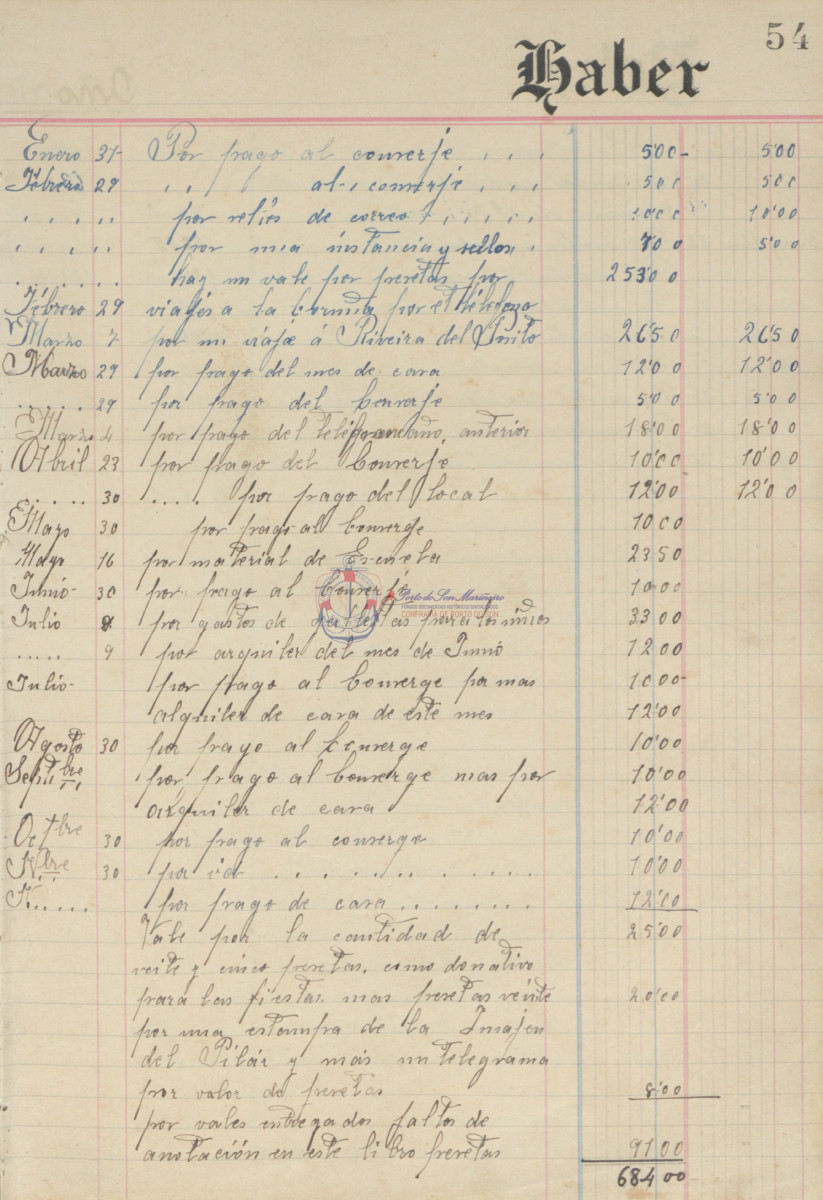 54
Haber
Enero 31 Por pago al converje . . . 5'00 - 5'00
Febrero 29 . . al . converje . . . 5'00 5'00
. . . . . por sellos de correo . . . . . 10'00 10'00
. . . . . por una instancia y sellos . 7'00 5'00
. . . . . . . hay un vale por pesetas por 253'00
Febrero 29 viajes a la Coruña por el teléfono
Marzo 7 por un viaje á Riveira del Pósito 26'50 26'50
Marzo 29 por pago del mes de casa 12'00 12'00
. . . . . 29 por pago del Converje 5'00 5'00
Marzo 4 por pago del anterior 18'00 18'00
Abril 23 por pago del Converje 10'00 10'00
. . . . . 30 . . . . por pago del local 12'00 12'00
Mayo 30 por pago al Converge 10 00
Mayo 16 por material de Escuela 23 50
Junio - 30 por pago al Converje 10 00
Porto do Son Mariñeiro
FONDOS DOCUMENTAIS HISTÓRICOS DIXITALIZADOS
CONFRARÍA DE PORTO DO SON
Julio 8 por gastos de galletas para los niños 33 00
. . . . . 9 por arquiler del mes de Junio 12 00
Julio - por pago al Converge por mas 10 00 -
alquiler de casa de este mes 12'00
Agosto 30 por pago al Converge 10'00
Septbre por pago al Converge mas por 10'00
arquiler de casa 12'00
Octbre 30 por pago al converge 10'00
Nbre 30 por id . . . . . . . . . . . . 10'00
N. . . . . . por pago de casa . . . . . . . . 12'00
Vale por la cantidad de 25'00
veite y cinco pesetas. como donativo
para las fiestas. mas pesetas veinte 20'00
por una estampa de la Imajen
del Pilár y más un telegrama
por valor de pesetas 8'00
por vales entregados faltos de
anotación en este libro pesetas 91 00
684 00